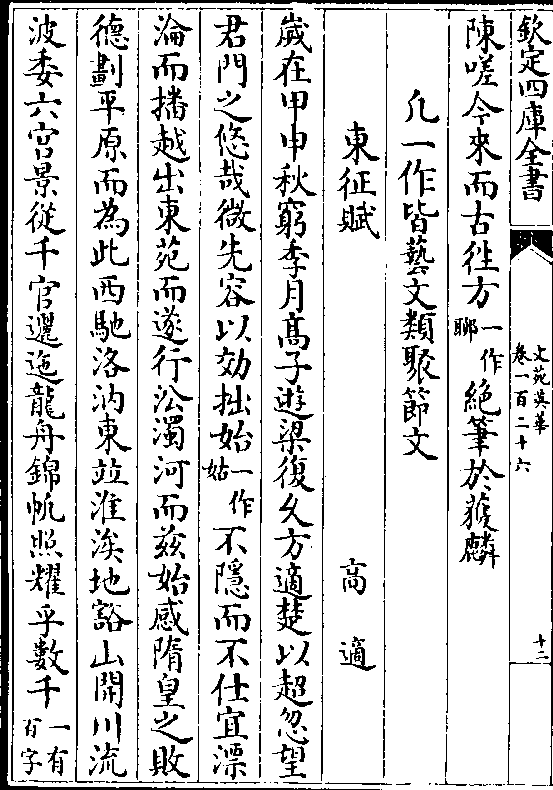 欽定四庫全書
文苑英華
卷一百二十六
十二
陳嗟今來而古往方一作聊絕筆於獲麟
凡一作皆藝文類聚節文
東征賦
高適
歲在甲申秋窮季月高子遊梁復久方適楚以超忽望
君門之悠哉微先容以効拙始一作姑不隱而不仕宜漂
淪而播越出東苑而遂行沿濁河而茲始感隋皇之敗
德劃平原而為此西馳洛汭東竝淮涘地豁山開川流
波委六宮景從千官邐迤龍舟錦帆照耀乎數千一有百字